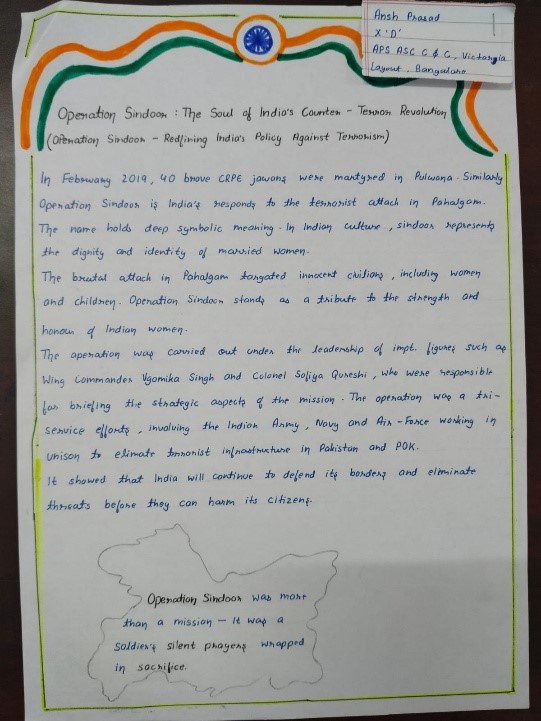 Ansh Prasad
X 'D'
APS ASC C & C, Victoria
Layout, Bangalore
Operation Sindoor : The Soul of India's Counter - Terror Revolution
(Operation Sindoor - Redfining India's Policy Against Terrorism)
In February 2019, 40 brave CRPF jawans were martyred in Pulwana. Similarly
Operation Sindoor is India's responds to the terrorist attack in Pahalgam.
The name holds deep symbolic meaning. In Indian culture, sindoor represents
the dignity and identity of married women.
The brutal attack in Pahalgam targated innocent civilians, including women
and children. Operation Sindoor stands as a tribute to the strength and
honour of Indian women.
The operation was carried out under the leadership of impt. figures such as
Wing Commander Vyomika Singh and Colonel Sofiya Qureshi, who were responsible
for briefing the strategic aspects of the mission. The operation was a tri-
service efforts, involving the Indian Army, Navy and Air-Force working in
unison to elimate terrorist infrastructure in Pakistan and POK.
It showed that India will continue to defend its borders and eliminate
threats before they can harm its citizens.
Operation Sindoor was more
than a mission - It was a
soldier's silent prayers wrapped
in sacrifice.